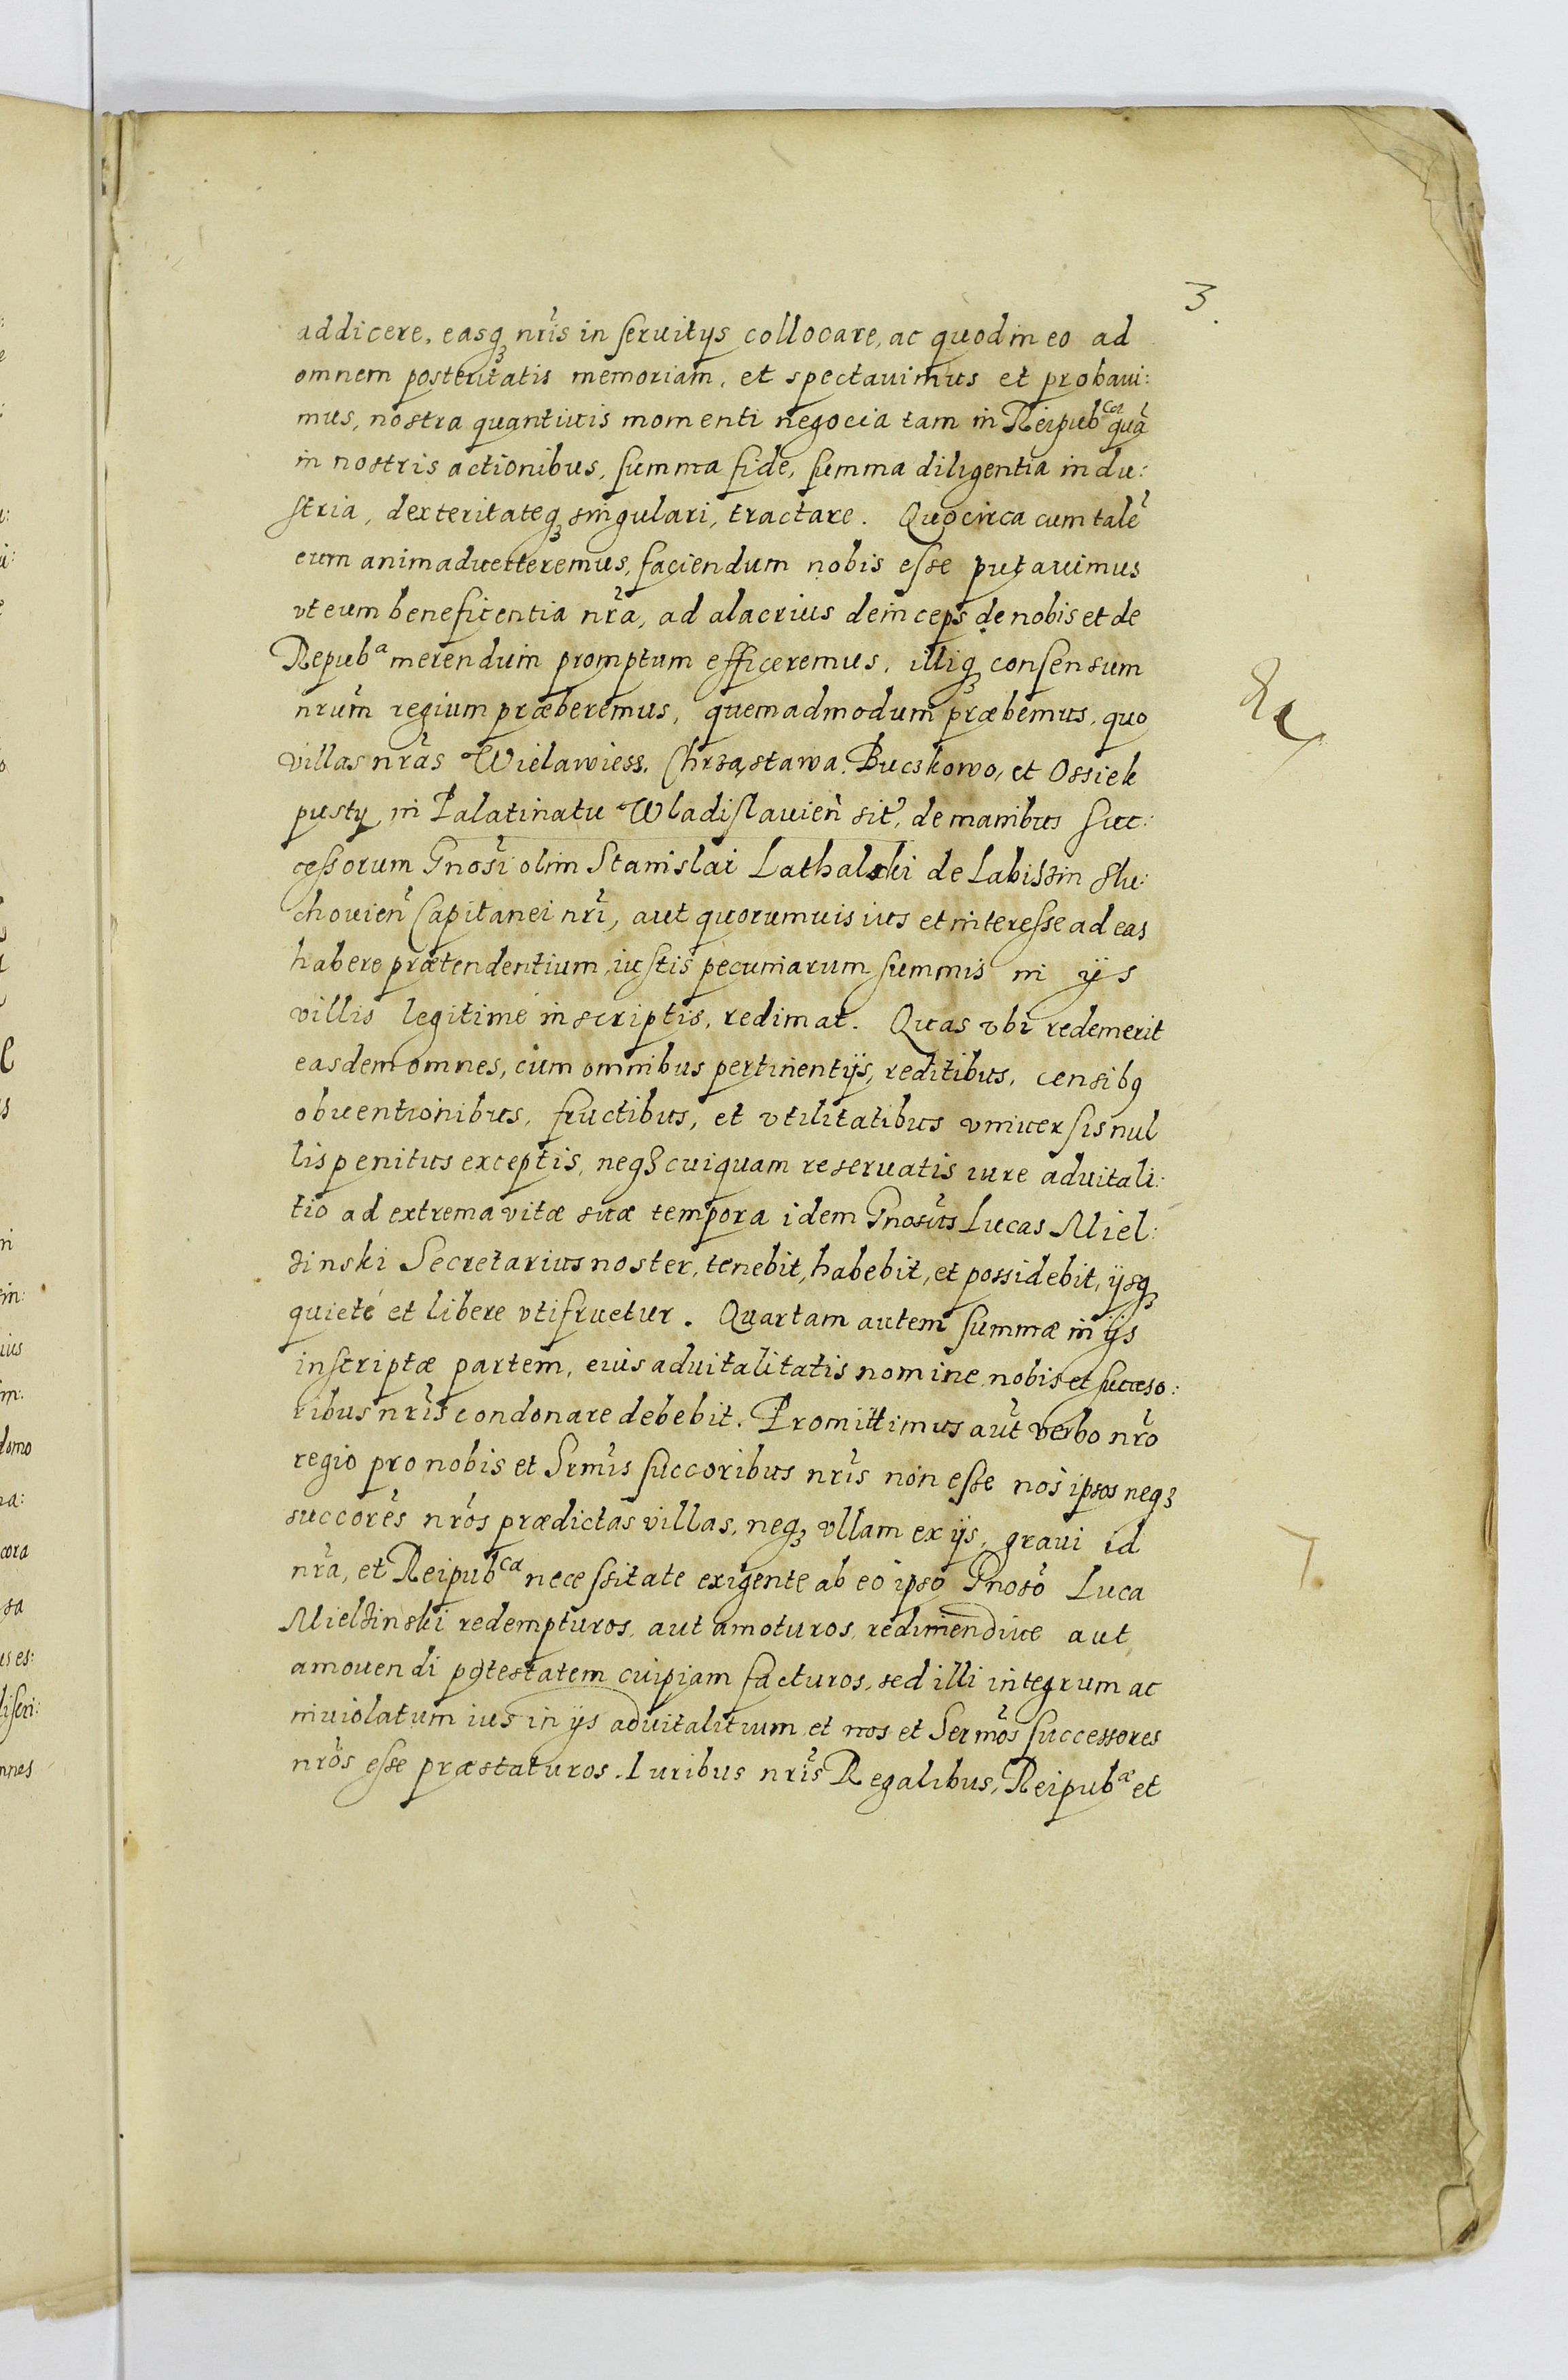 3.
addicere, easq̨ nr̃is in seruitijs collocare, ac quod in eo ad
omnem posteritatis memoriam, et spectauimus et probaui:
mus, nostra quantiuis momenti negocia tam in Reipub^cæ quã
in nostris actionibus, summa fide, summa diligentia indu:
stria, dexteritateq̨ singulari, tractare. Quocirca cum talẽ
eum animaduerteremus, faciendum nobis esse putauimus
vt eum beneficentia nr̃a, ad alacrius deinceps de nobis et de
Repub^a merendum promptum efficeremus, illiq̨ consensum
nrũm regium præberemus, quemadmodum præbemus, quo
villas nrãs Wielawiess, Chrząstawa, Buczkowo, et Ossiek
pusty in Palatinatu Wladislauieñ sit̃, de manibus suc:
cessorum Gnosĩ olim Stanislai Lathalski de Labissin Slu:
chouieñ Capitanei nrĩ, aut quorumuis ius et interesse ad eas
habere prætendentium, iustis pecuniarum summis in ijs
villis legitime inscriptis, redimat. Quas vbi redemerit
easdem omnes, cum omnibus pertinentijs, reditibus, censibq
obuentionibus, fructibus, et vtilitatibus vniuersis nul
lis penitus exceptis, neqȝ cuiquam reseruatis iure aduitali:
tio ad extrema vitæ suæ tempora idem Gnosũs Lucas Miel:
zinski Secretarius noster, tenebit, habebit, et possidebit, ijsq̨
quietè et libere vtifruetur. Quartam autem summæ in ijs
inscriptæ partem, euis aduitalitatis nomine nobis et succeso:
ribus nrĩs condonare debebit. Promittimus aũt verbo nrõ
regio pro nobis et Srmĩs succoribus nrĩs non esse nos ipsos neqȝ
succorẽs nrõs prædictas villas, neqȝ vllam ex ijs, graui id
nrã, et Reipub^ca necessitate exigente ab eo ipso Gnosõ Luca
Mielzinski redempturos, aut amoturos, redimendiue aut
amouendi potestatem cuipiam facturos, sed illi integrum ac
inuiolatum ius in ijs aduitalitium et nos et Sermõs successores
nrõs esse præstaturos. Iuribus nrĩs Regalibus, Reipub^æ et